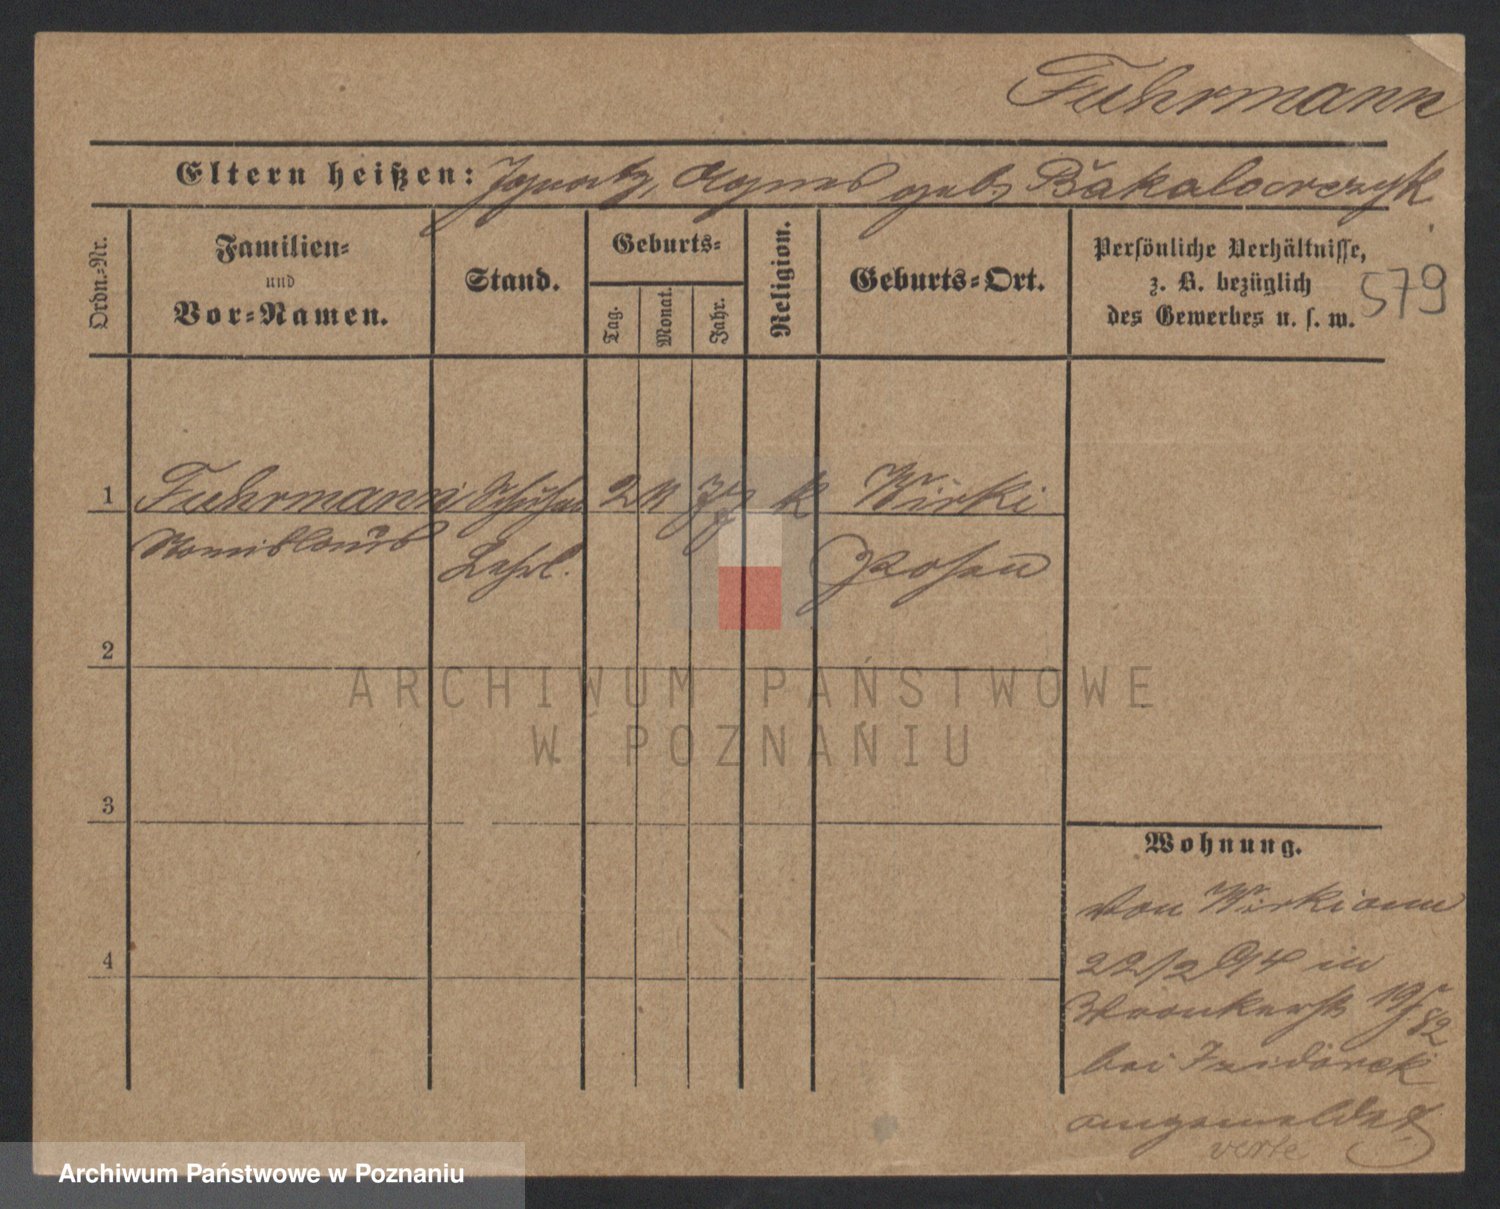 Fuhrmann
Eltern heißen: Ignatz, Agnes geb. Bakalarczyk
Ordn.-Nr.
Familien-
und
Vor-Namen.
Stand.
Geburts-
Tag.
Monat.
Jahr.
Religion.
Geburts-Ort.
Persönliche Verhältnisse,
z. B. bezüglich
des Gewerbes u. s. w.
579
1 Fuhrmann 2 k Wirki
Stanislaus Lehrl. Posen
2
3
4
Wohnung.
von Wirki am
22/2 94 in
Wronkerstr 19
bei
angemeldet
verte
ARCHIWUM PAŃSTWOWE
W POZNANIU
Archiwum Państwowe w Poznaniu